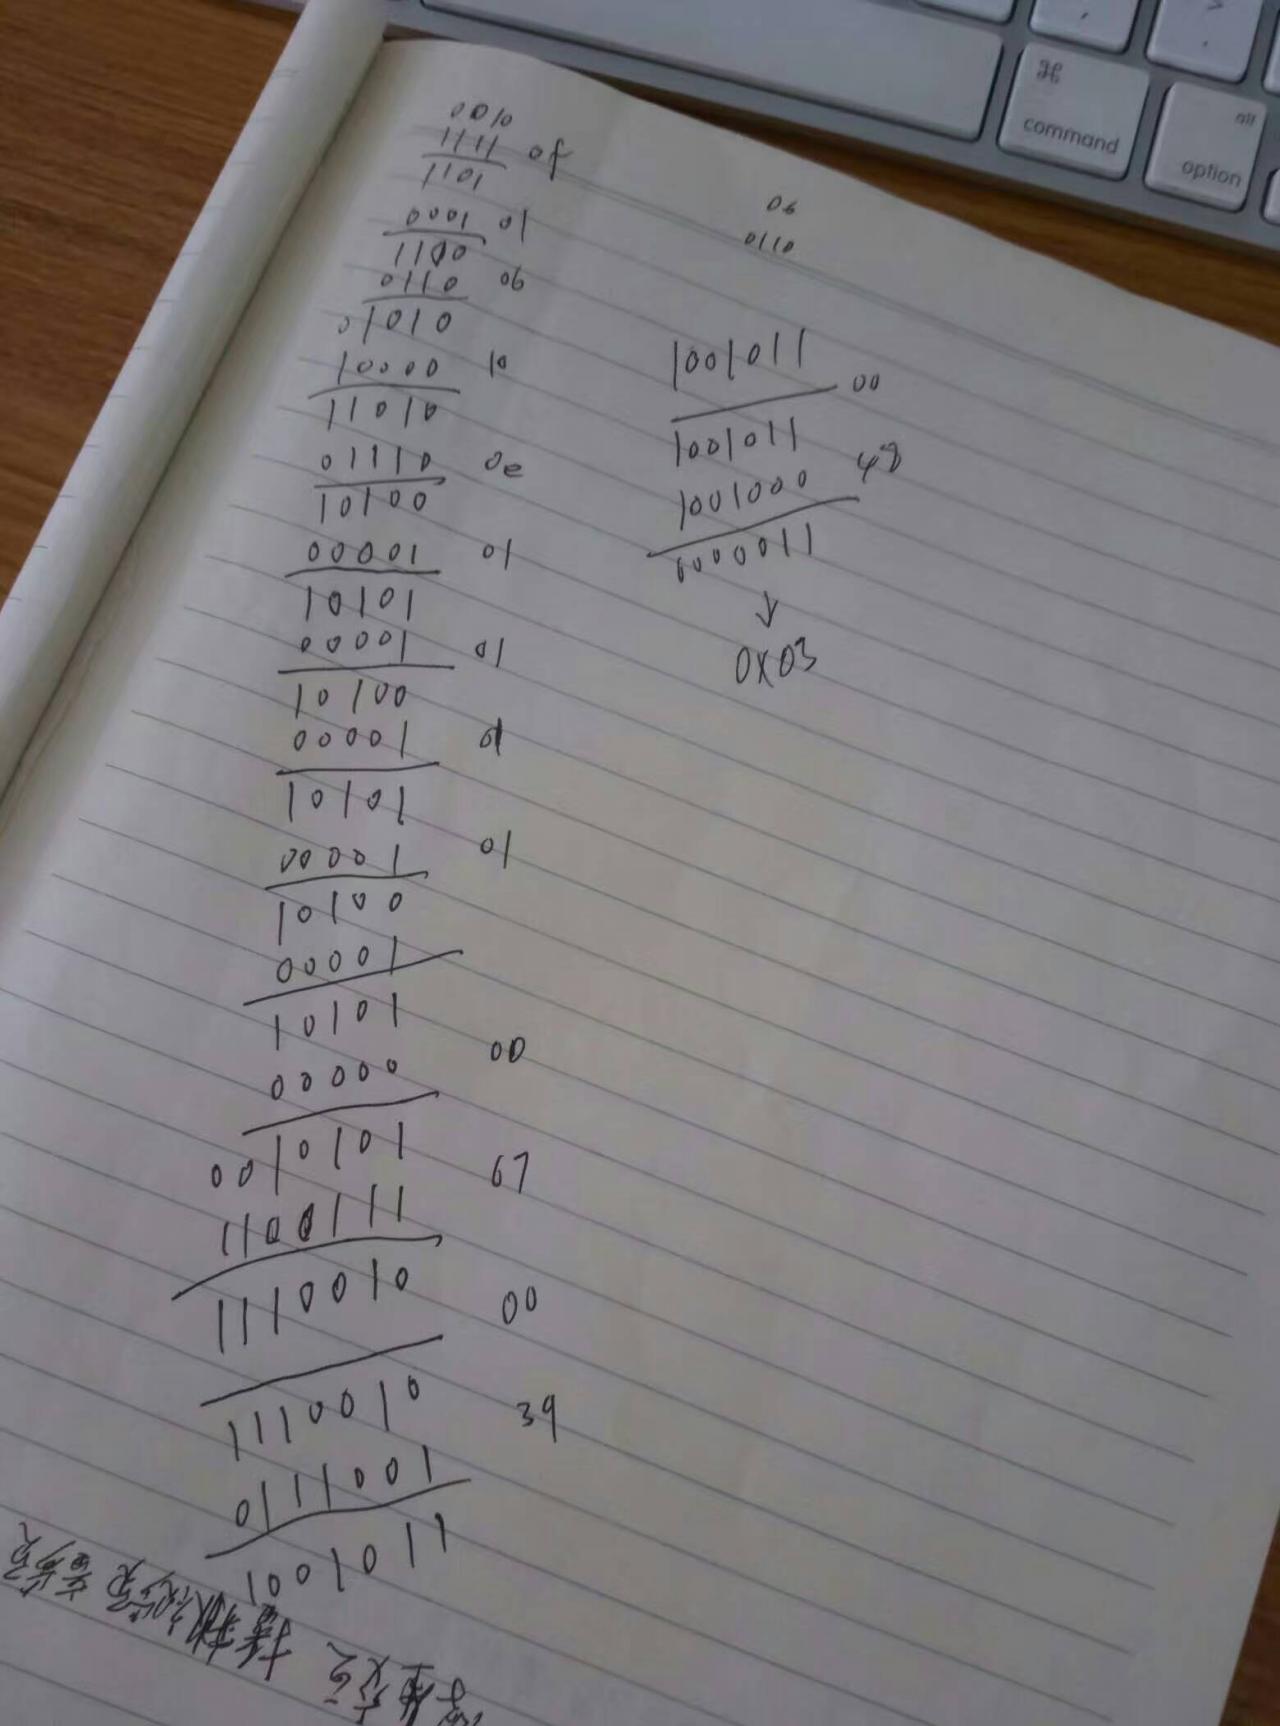 0010
1111 of
1101
0001 01
1100
0110 06
01010
10000 10
11010
01110 0e
10100
00001 01
10101
00001 01
10100
00001 01
10101
00001 01
10100
00001
10101
00000 00
0010101
1100111 67
1110010
00
1110010
0111001 39
1001011
06
0110
1001011
00
1001011
1001000 48
0000011
↓
0x03
⌘
command
alt
option